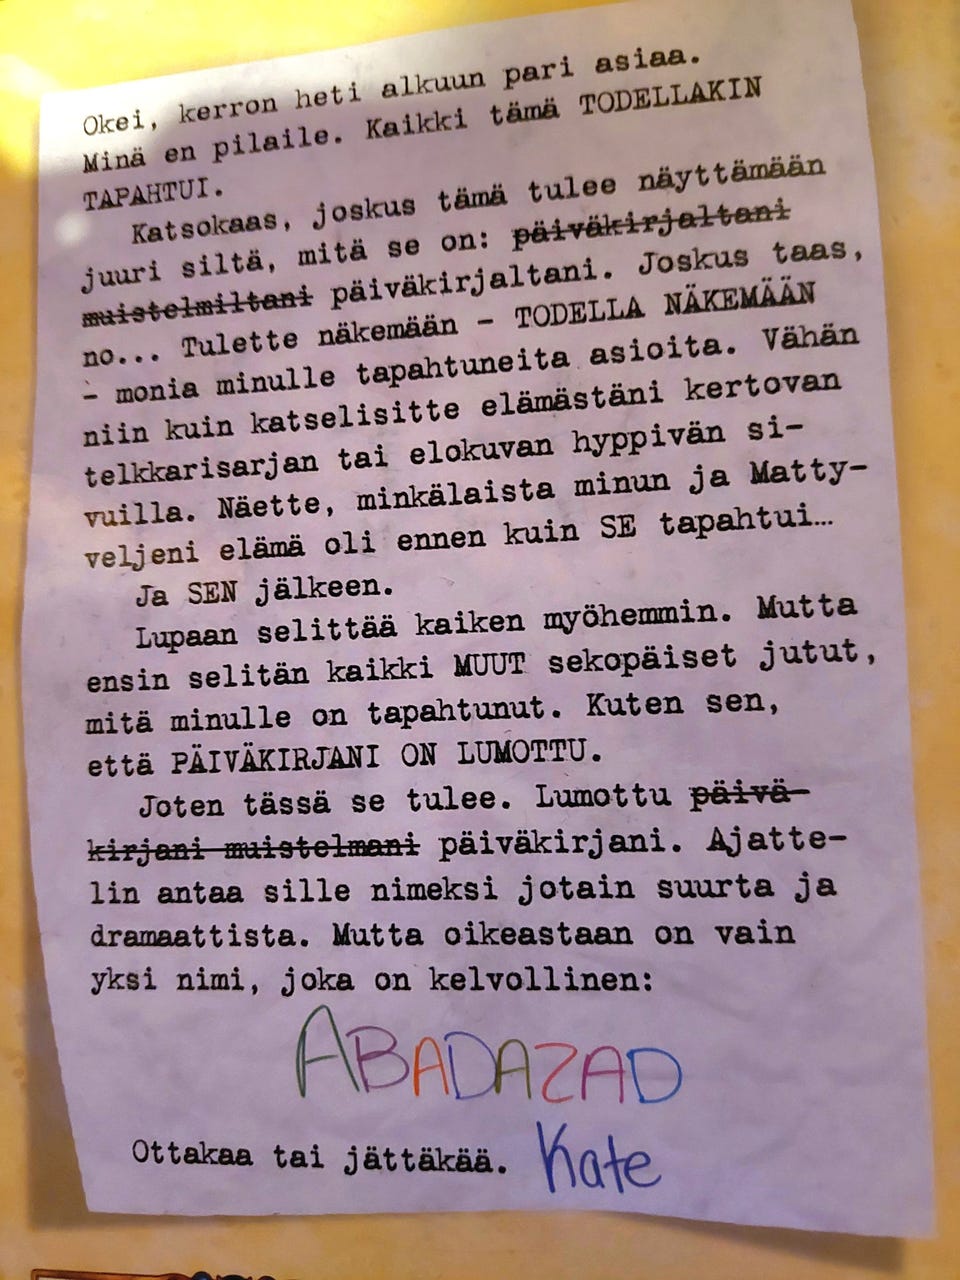 Okei, kerron heti alkuun pari asiaa.
Minä en pilaile. Kaikki tämä TODELLAKIN
TAPAHTUI.
Katsokaas, joskus tämä tulee näyttämään
juuri siltä, mitä se on: päiväkirjaltani
muistelmiltani päiväkirjaltani. Joskus taas,
no... Tulette näkemään - TODELLA NÄKEMÄÄN
- monia minulle tapahtuneita asioita. Vähän
niin kuin katselisitte elämästäni kertovan
telkkarisarjan tai elokuvan hyppivän si-
vuilla. Näette, minkälaista minun ja Matty-
veljeni elämä oli ennen kuin SE tapahtui…
Ja SEN jälkeen.
Lupaan selittää kaiken myöhemmin. Mutta
ensin selitän kaikki MUUT sekopäiset jutut,
mitä minulle on tapahtunut. Kuten sen,
että PÄIVÄKIRJANI ON LUMOTTU.
Joten tässä se tulee. Lumottu päivä-
kirjani muistelmani päiväkirjani. Ajatte-
lin antaa sille nimeksi jotain suurta ja
dramaattista. Mutta oikeastaan on vain
yksi nimi, joka on kelvollinen:
ABADAZAD
Ottakaa tai jättäkää. Kate